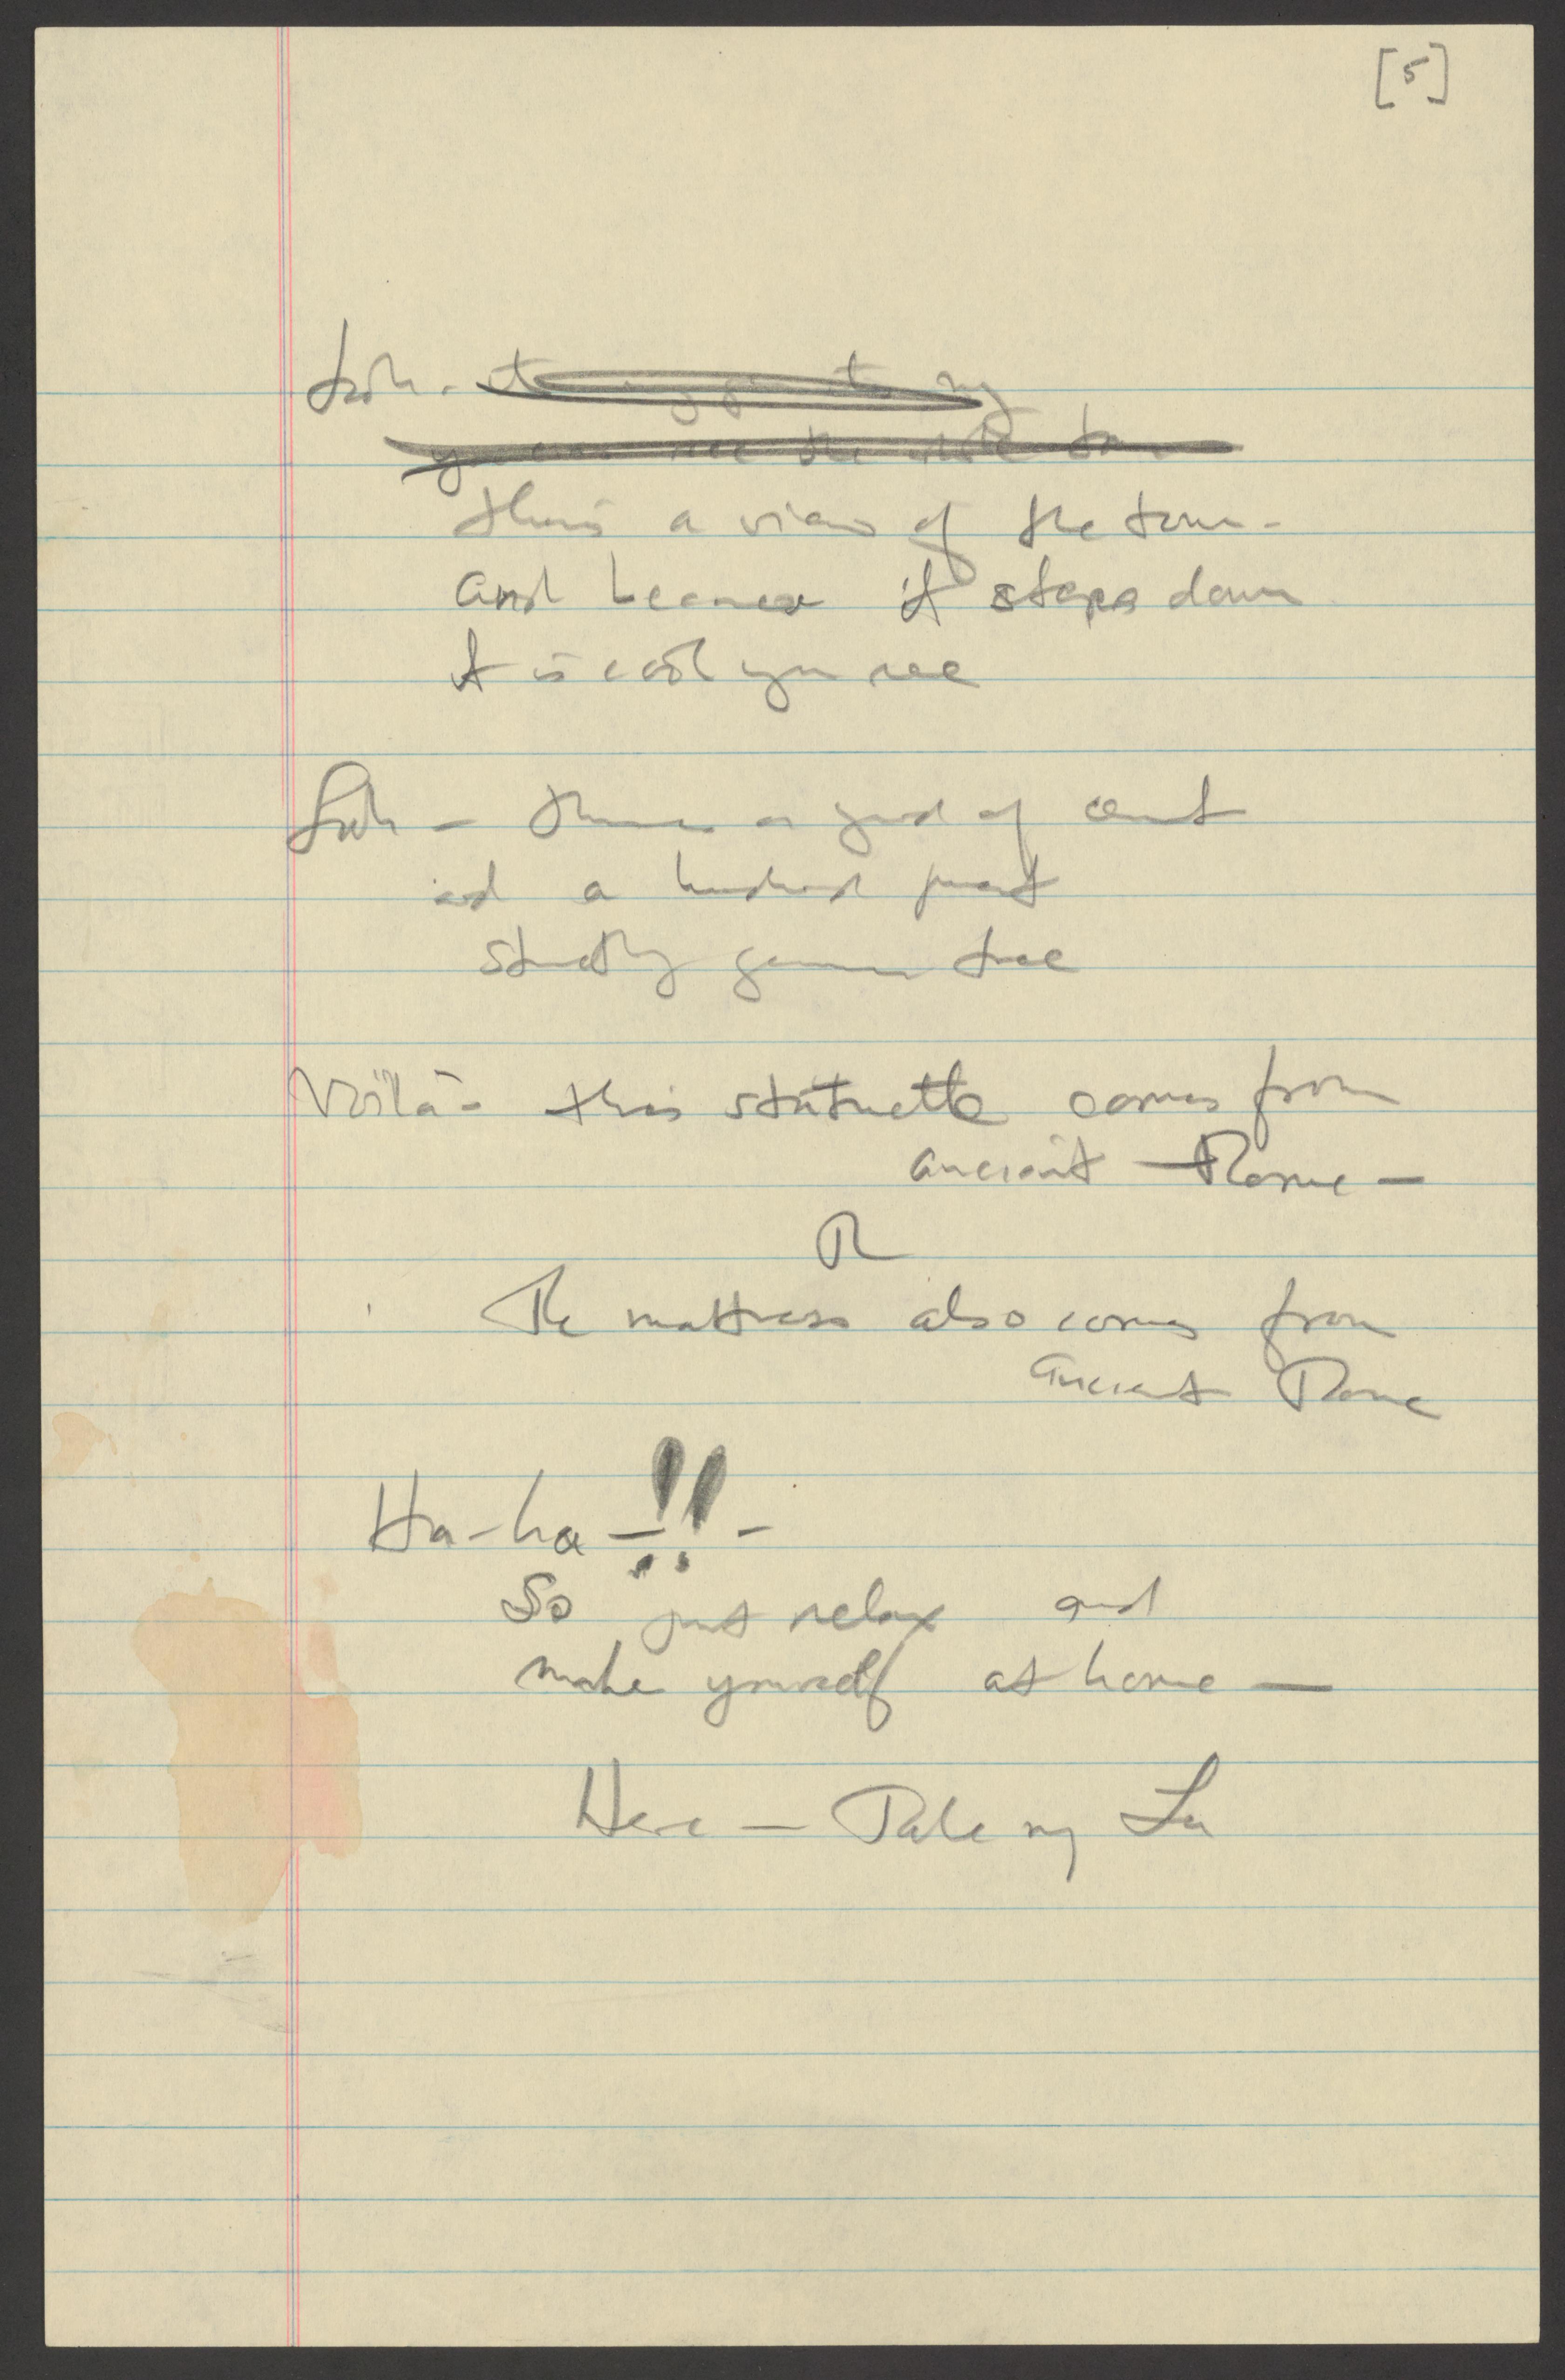 [5]
Look -
you can see the whole town
there's a view of the town -
and because it steps down
it is cool you see
Look - there a god of
and a hundred
strictly
Voilà - this statuette comes from
ancient Rome -
R
The mattress also comes from
ancient Rome
Ha-ha -!! -
So just relax and
make yourself at home —
Here — Take my